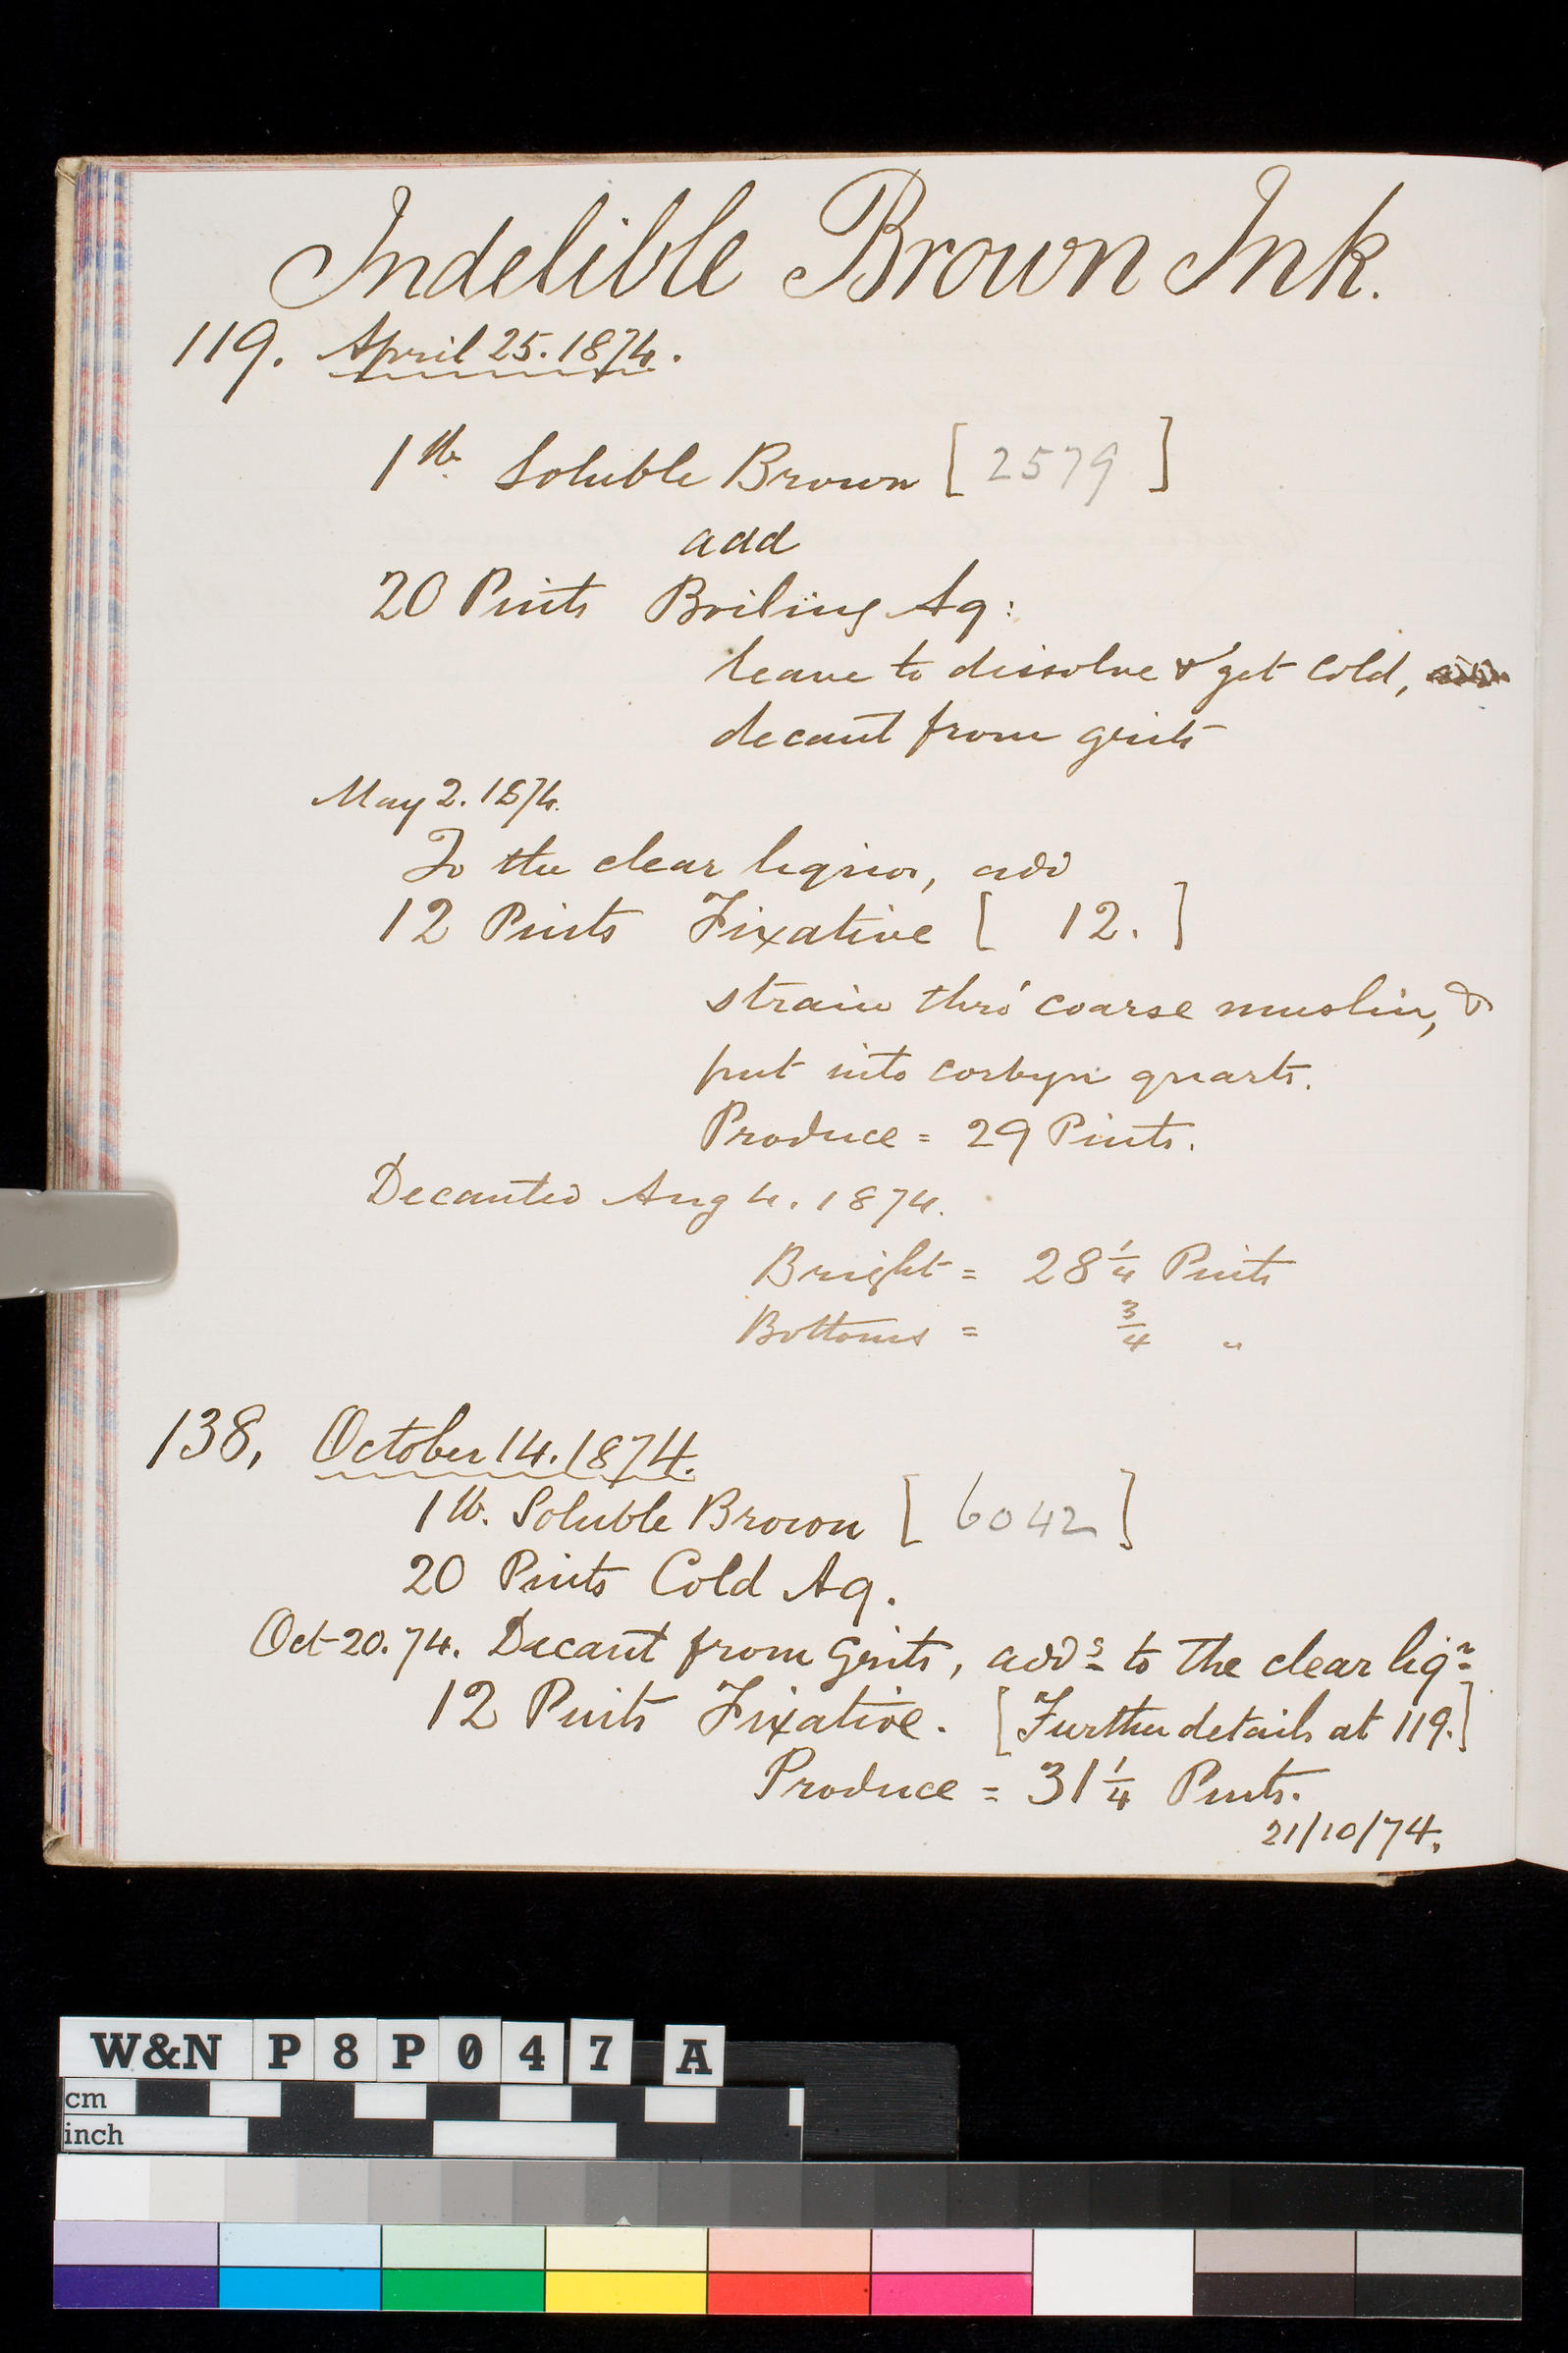 Indelible Brown Ink.
119. April 25. 1874.
1 lb. Soluble Brown [ 2579 ]
add
20 Pints Boiling Aq:
leave to dissolve & get cold,
decant from grits
May 2. 1874.
To the clear liquor, add
12 Pints Fixative [ 12. ]
strain thro' coarse muslin, &
put into corbyn quarts.
Produce = 29 Pints.
Decanted Aug 4. 1874.
Bright = 28 1/4 Pints
Bottoms = 3/4 "
138, October 14. 1874.
1 lb. Soluble Brown [ 6042 ]
20 Pints Cold Aq.
Oct-20.74. Decant from Grits, add^s to the clear liq^r
12 Pints Fixative. [Further details at 119.]
Produce = 31 1/4 Pints.
21/10/74.
W&N P8P047 A
cm
inch